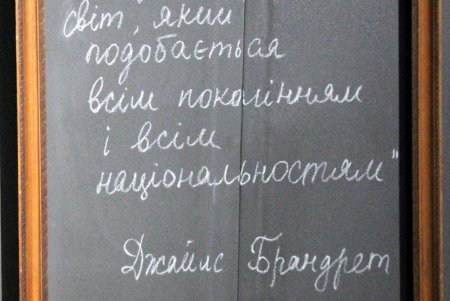 світ, який
подобається
всім поколінням
і всім
національностям"
Джайлс Брандрет